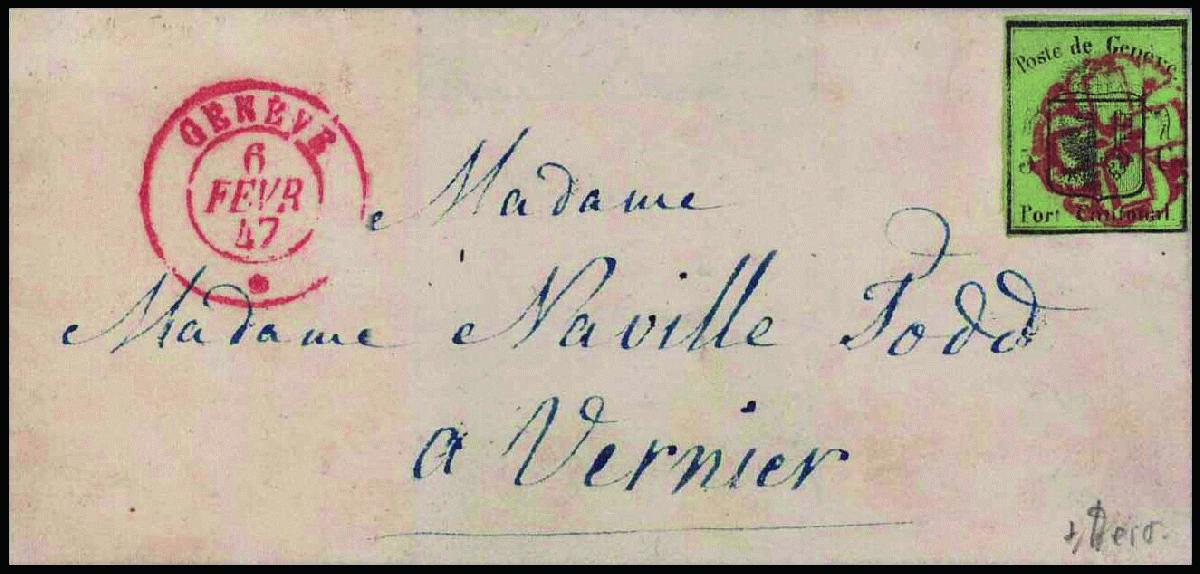 GENÈVE
6
FEVR
47
Poste de Genève
Port Cantonal.
Madame
Madame Naville Todd
a Vernier